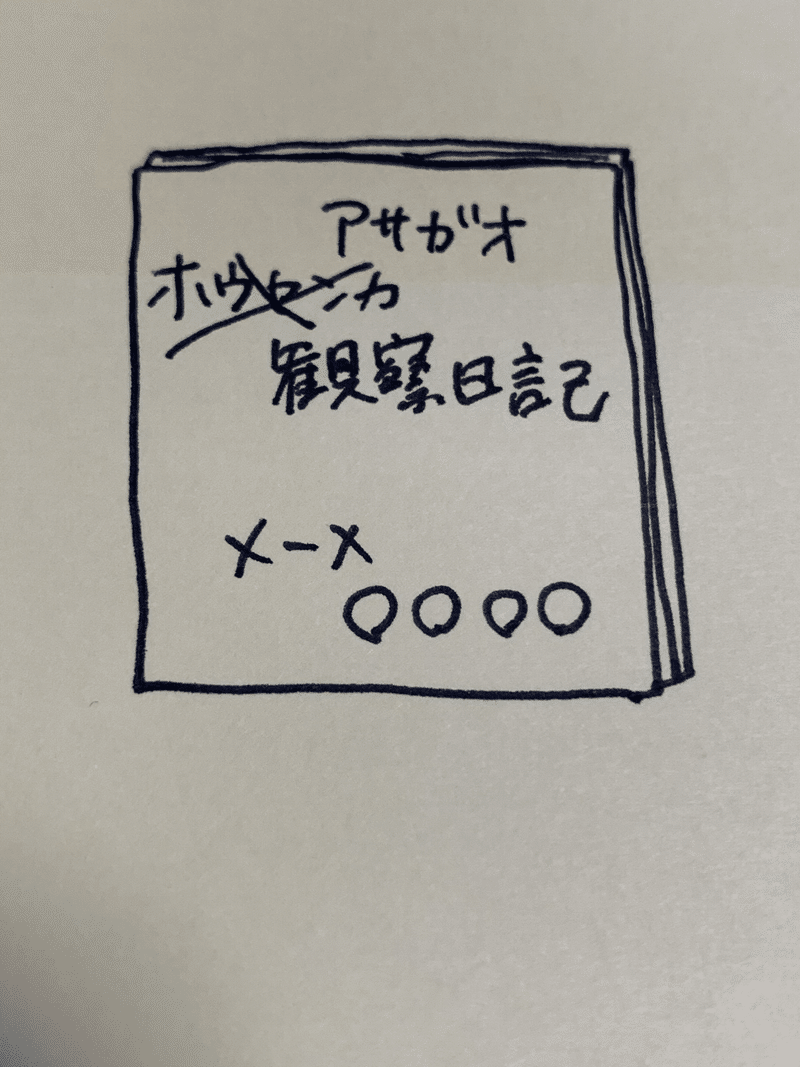 アサガオ
ホウセンカ
観察日記
×-×
○○○○